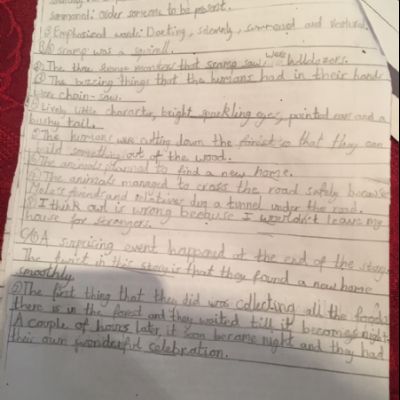 summoned: order someone to be present.
③ Emphasised words: Darting, solemnly, summoned and ventured.
B/① Scamp was a squirell.
② The three stones monsters that scamp saw were bulldozers.
③ The buzzing things that the humans had in their hands
were chain-saw.
④ Lively little character, bright sparkling eyes, pointed ears and a
bushy tail.
⑤ The humans were cutting down the forest so that they can
build something out of the wood.
⑥ The animals planned to find a new home.
⑦ The animals managed to cross the road safely because
Mole's friends and relatives dug a tunnel under the road.
⑧ I think owl is wrong because I wouldn't leave my
house for strangers.
C/① A suprising event happened at the end of the story.
The twist in this story is that they found a new home
smoothly.
② The first thing that they did was collecting all the foods
there is in the forest and they waited till it becomes night
A couple of hours later, it soon became night and they had
their own wonderful celebration.